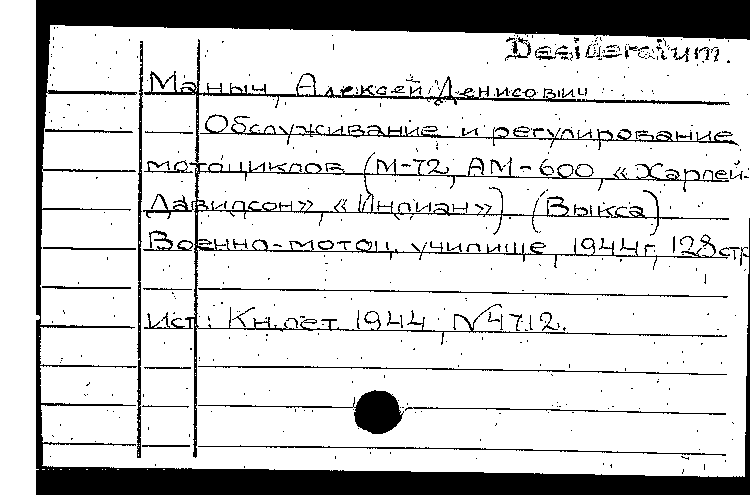 Desideratum.
Маныч, Алексей Денисович
Обслуживание и регулирование
мотоциклов (М-72, АМ-600, «Харлей-
Давидсон», «Индиан»). (Выкса)
Военно-мотоц. училище, 1944г, 128стр
Ист: Кн.лет. 1944, №4712.